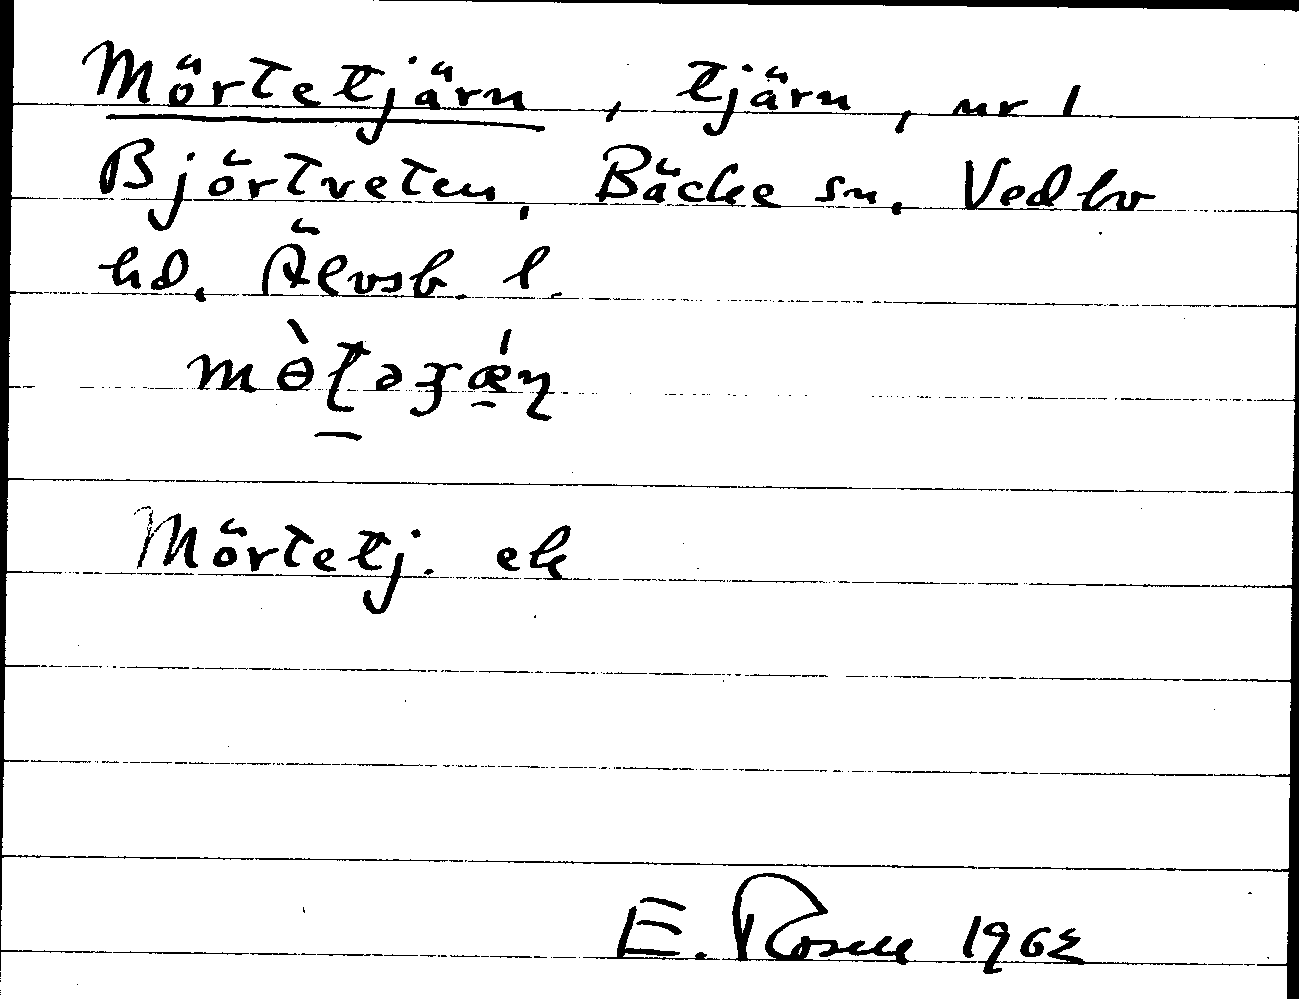 Mörtetjärn, tjärn, nr 1
Björtveten, Bäcke sn. Vedbo
hd. Älvsb. l.
mɵ̀ʈəɟǽɳ
Mörtetj. ek
E. Rosell 1962